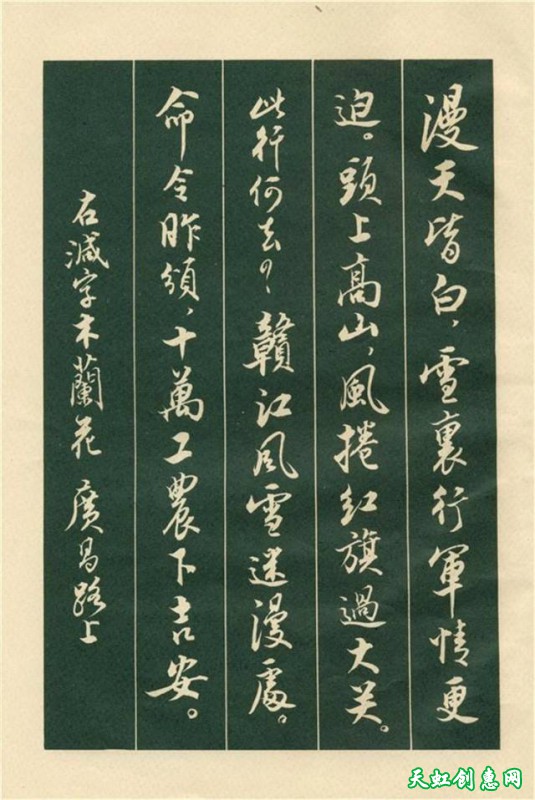 漫天皆白，雪裏行軍情更
迫。頭上高山，風捲红旗過大关。
此行何去？贛江风雪迷漫處。
命令昨頒，十萬工農下吉安。
右減字木蘭花 廣昌路上
天虹创惠网